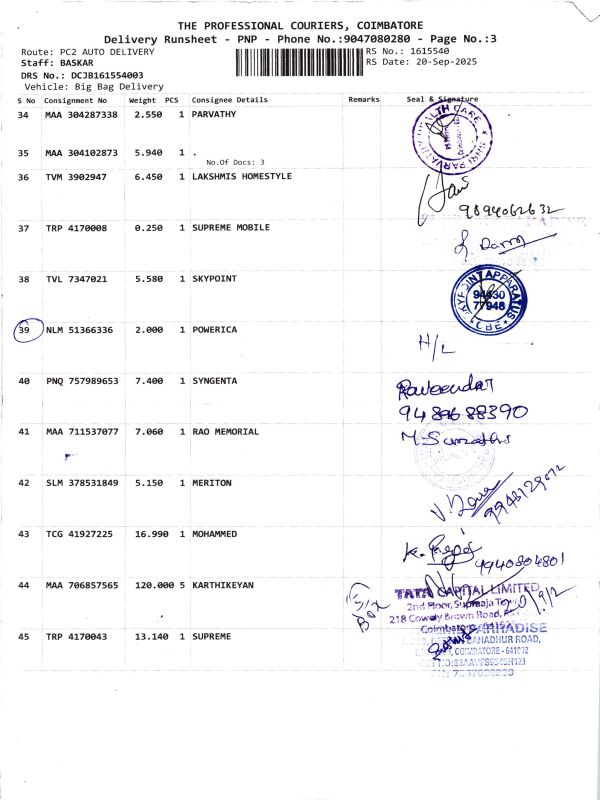 THE PROFESSIONAL COURIERS, COIMBATORE
Delivery Runsheet - PNP - Phone No.:9047080280 - Page No.:3
Route: PC2 AUTO DELIVERY
RS No.: 1615540
Staff: BASKAR
RS Date: 20-Sep-2025
DRS No.: DCJB161554003
Vehicle: Big Bag Delivery
S No Consignment No Weight PCS Consignee Details Remarks Seal & Signature
34 MAA 304287338 2.550 1 PARVATHY
35 MAA 304102873 5.940 1 .
No.Of Docs: 3
36 TVM 3902947 6.450 1 LAKSHMIS HOMESTYLE
9894062632
37 TRP 4170008 0.250 1 SUPREME MOBILE
38 TVL 7347021 5.580 1 SKYPOINT
94430
77948
CBE
39 NLM 51366336 2.000 1 POWERICA
H/L
40 PNQ 757989653 7.400 1 SYNGENTA
Raveendar
9489688390
41 MAA 711537077 7.060 1 RAO MEMORIAL
42 SLM 378531849 5.150 1 MERITON
43 TCG 41927225 16.990 1 MOHAMMED
9940804801
44 MAA 706857565 120.000 5 KARTHIKEYAN
BOX
TATA CAPITAL LIMITED
2nd Floor, Supraaja
218 Cowley Brown Road,
Coimbatore
45 TRP 4170043 13.140 1 SUPREME
BAHADHUR ROAD,
COIMBATORE - 641002